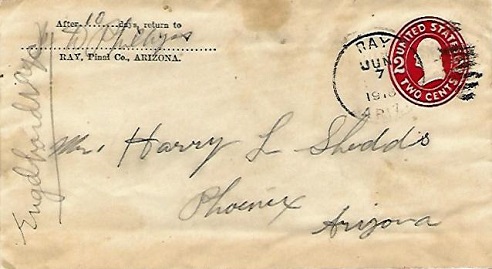 After 10 days, return to
RAY, Pinal Co., ARIZONA.
RAY
JUN
7
ARIZ.
UNITED STATES
2
TWO CENTS
Mr. Harry L Shedds
Phoenix
Arizona